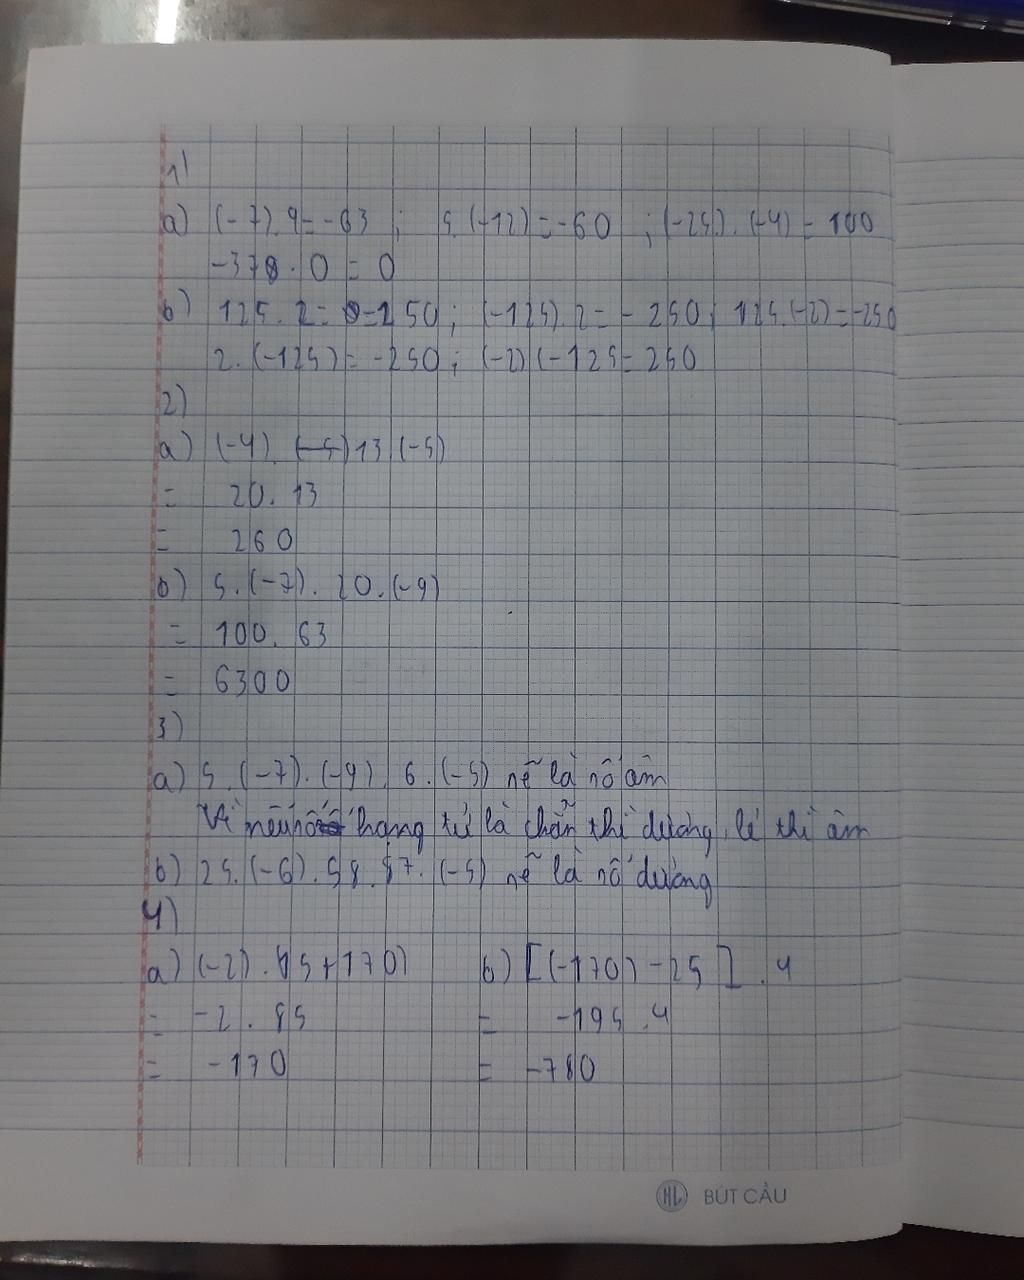 1)
a) (-7).9=-63 ; 5.(-12)=-60 ; (-25).(-4)=100
-378.0=0
b) 125.2==250; (-125).2=-250; 125.(-2)=-250
2.(-125)=-250; (-2)(-125=250
2)
a) (-4) 13 (-5)
= 20.13
= 260
b) 5.(-7).20.(-9)
= 100.63
= 6300
3)
a) 5.(-7).(-4).6.(-5) sẽ là số âm
Vì nếu số hạng tử là chẵn thì dương, lẻ thì âm
b) 25.(-6).58.87.(-5) sẽ là số dương
4)
a) (-2).85+170)
b) [(-170)-25].4
= -2.85
= -195.4
= -170
= -780
HL BÚT CẦU